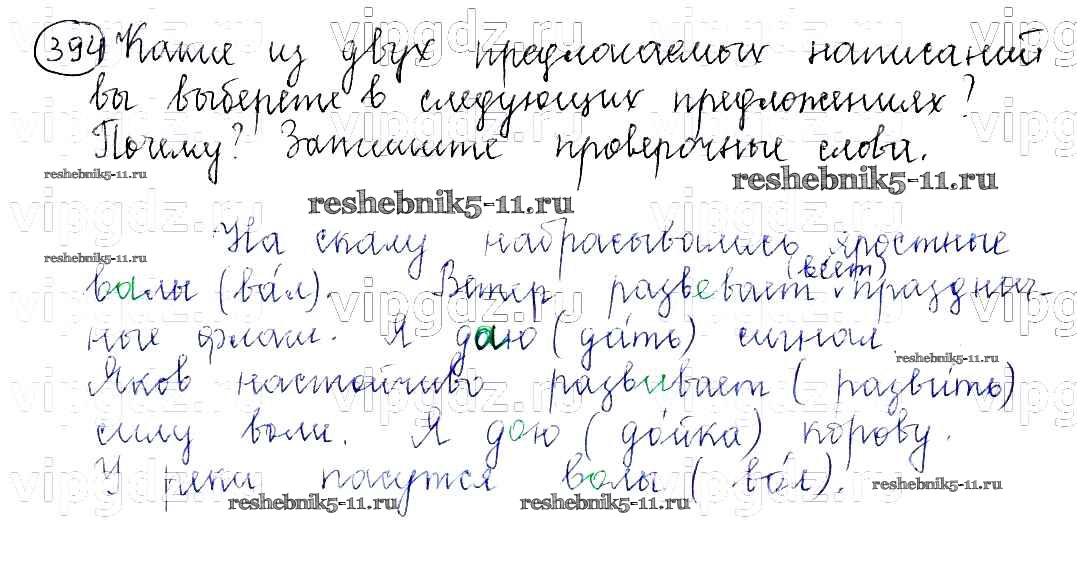 394 Какие из двух предлагаемых написаний
вы выберете в следующих предложениях?
Почему? Запишите проверочные слова.
reshebnik5-11.ru
reshebnik5-11.ru
reshebnik5-11.ru
На скалу набрасывались яростные
reshebnik5-11.ru
валы (ва́л). Ветер развевает (ве́ет) празднич-
ные флаги. Я даю (да́ть) сигнал
reshebnik5-11.ru
Яков настойчиво развивает (разви́ть)
силу воли. Я дою (до́йка) корову.
У реки пасутся волы (во́л).
reshebnik5-11.ru
reshebnik5-11.ru
reshebnik5-11.ru
vipgdz.ru